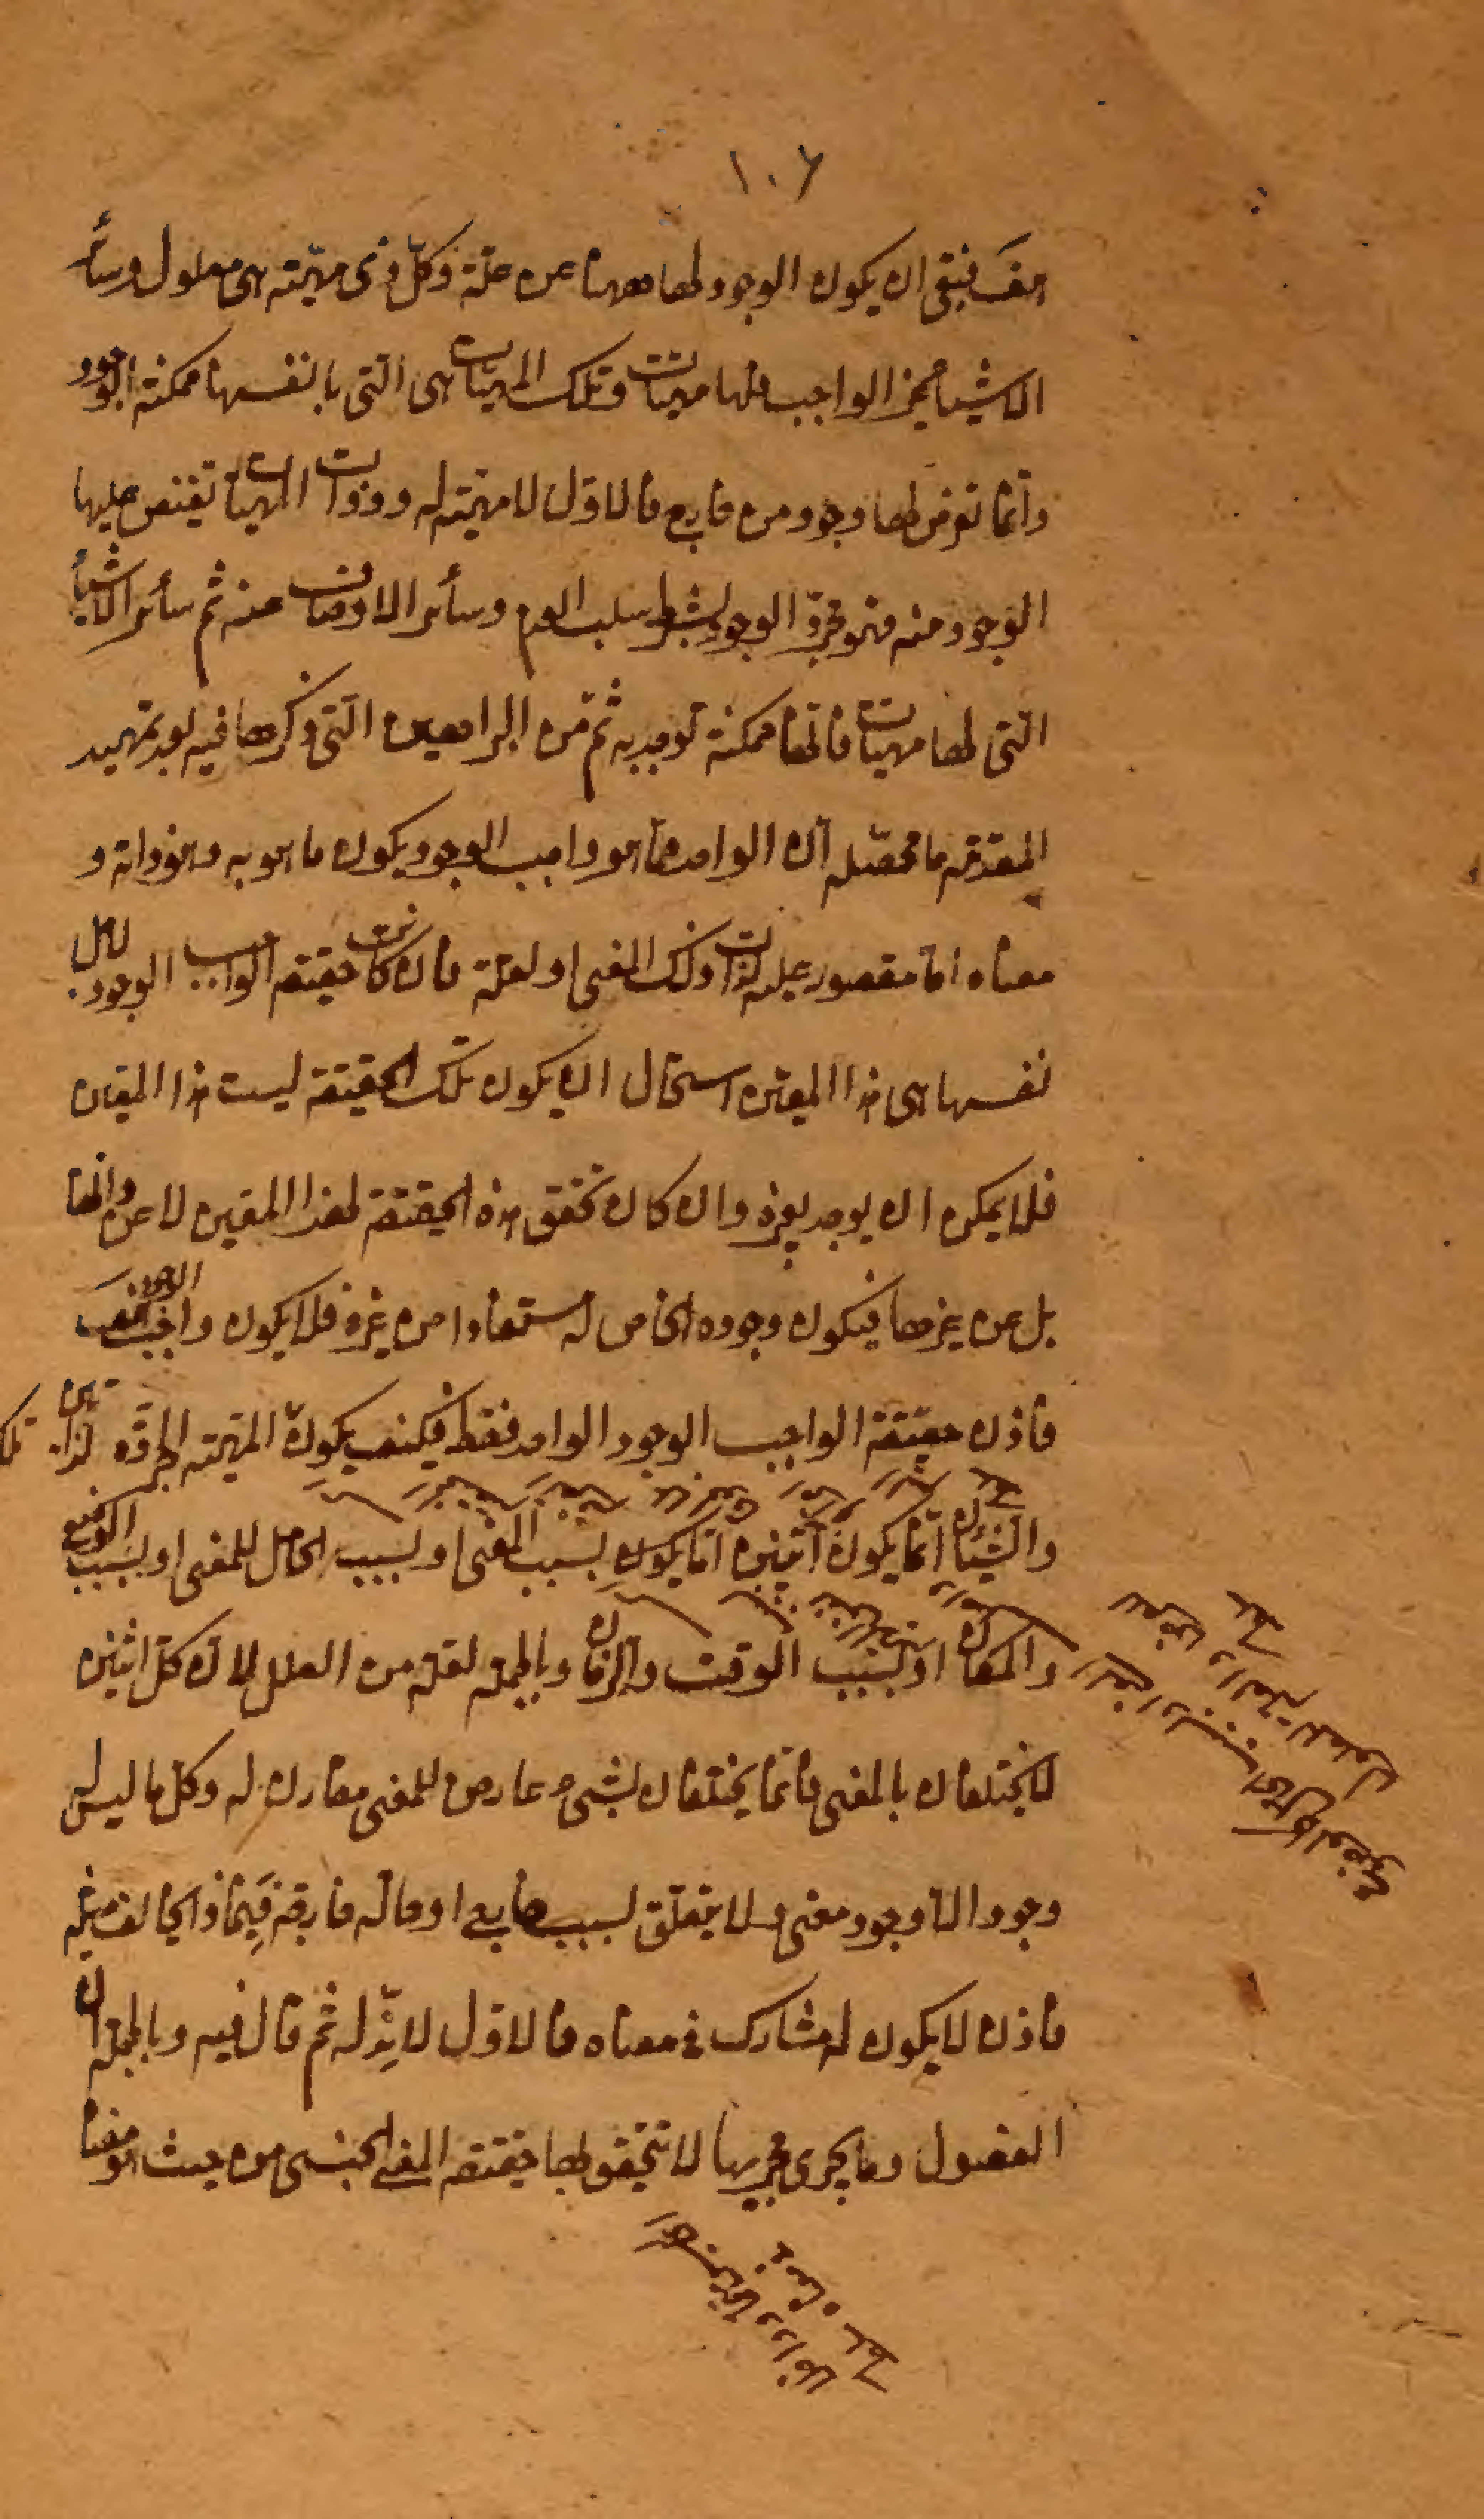 ١٠٦
هف فبقى ان يكون الوجود لها معها عن علة وكل ذى مهيته هى معلول وسائر
الاشياء غير الواجب فلها مهيات وتلك المهيات هى التى بانفسها ممكنة الوجود
وانما تعرض لها وجود من خارج فالاول لا مهية له وذوات المهيات تفيض عليها
الوجود منه فهو مجرد الوجود بشرط سلب العدم وسائر الاوصاف عنه ثم سائر الاشياء
التى لها مهيات فانها ممكنة توجد به ثم من البراهين التى ذكرها فيه بعد تمهيد
المقدمة ما محصله ان الواحد مما هو واجب الوجود يكون ما هو به وهو ذاته و
معناه اما مقصور عليه لذات ذلك المعنى او لعلة فان كانت حقيقة الواجب الوجود لاجل
نفسها هى هذا المعين استحال ان يكون تلك الحقيقة ليست هذا المعين
فلا يمكن ان يوجد لغيره وان كان تحقق هذه الحقيقة لهذا المعين لا عن ذاتها
بل عن غيرها فيكون وجوده الخاص له مستفادا من غيره فلا يكون واجب الوجود هف
فاذن حقيقة الواجب الوجود الواحد فقط فكيف يكون المهية المجردة لذاتين
والشيئان انما يكون اثنين اما يكون بسبب المعنى او بسبب الحامل للمعنى او بسبب الوضع
والمكان او بسبب الوقت والزمان وبالجملة لعلة من العلل لان كل اثنين
لا يختلفان بالمعنى فانما يختلفان بشىء عارض للمعنى مقارن له وكل ما ليس له
وجود الا وجود معنى ولا يتعلق بسبب خارج او حالة خارجة فبماذا يخالف مثله
فاذن لا يكون له مشارك فى معناه فالاول لا ند له ثم قال فيه وبالجملة ان
الفصول وما يجرى مجريها لا تتحقق لها حقيقة المعنى الجنسى من حيث هو معناه